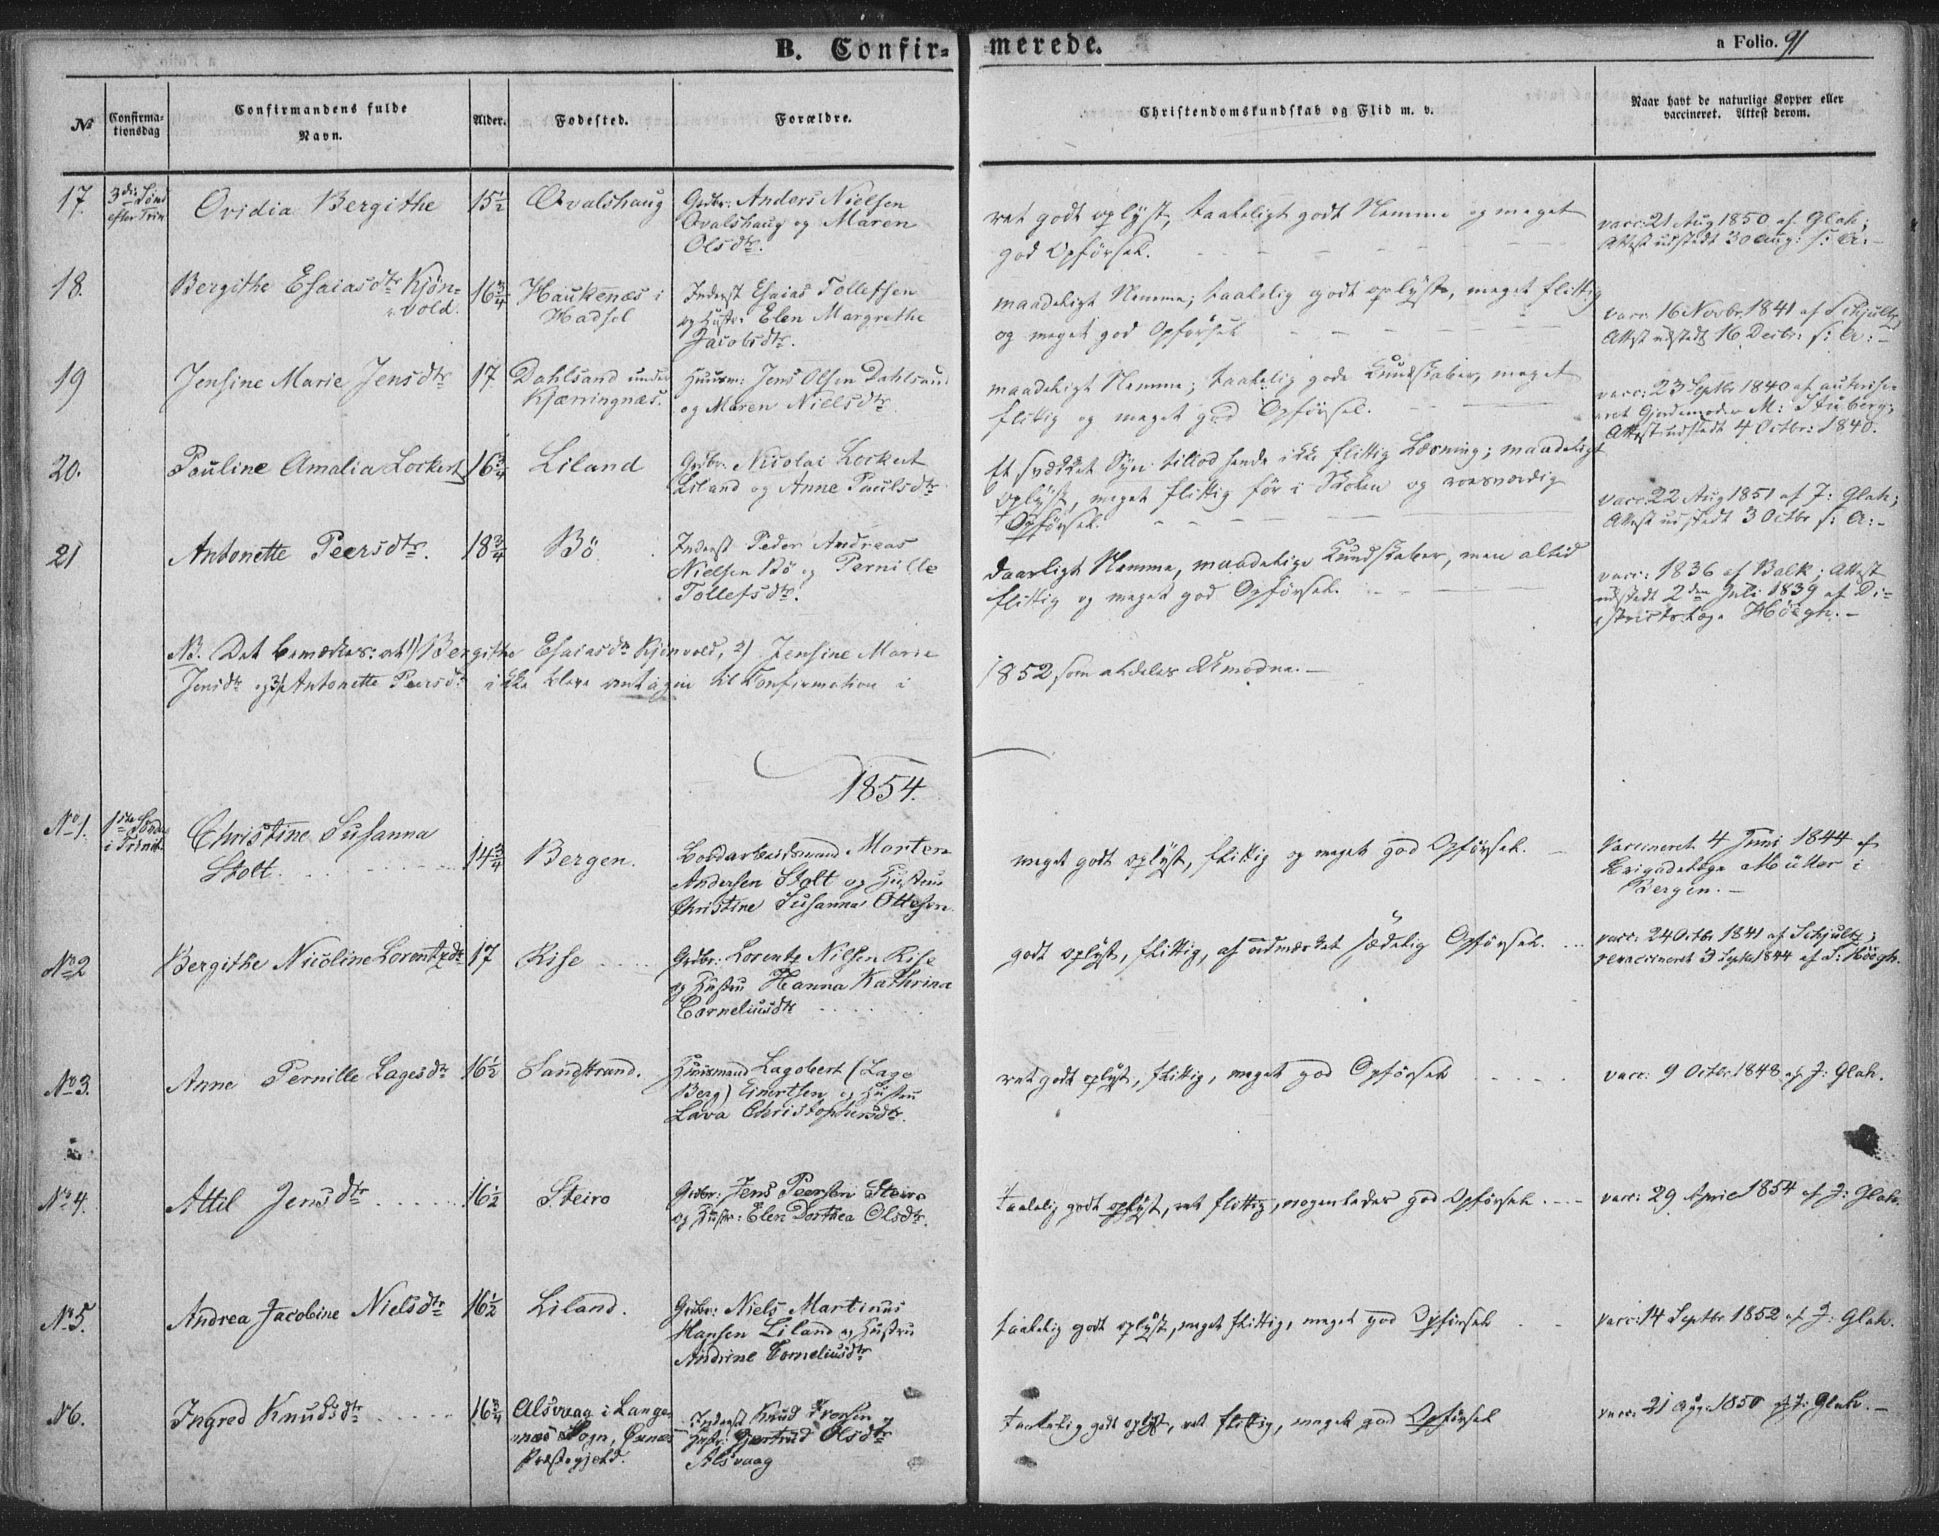 B. Confir-
merede.
a Folio. 91
No
Confirma-
tionsdag
Confirmandens fulde
Navn.
Alder.
Fødested.
Forældre.
Christendomskundskab og Flid m. v.
Naar havt de naturlige Kopper eller
vaccineret. Attest derom.
17.
3die Sønd
efter Trin
Ovidia Bergithe
15½
Ovalshaug
Grdbr: Anders Nielsen
Ovalshaug og Maren
Olsdtr.
ret godt oplyst, taaleligt godt Nemme og meget
god Opførsel.
vacc: 21 Aug 1850 af Glah;
Attest udstedt 30 Aug: s: A:
18.
Bergithe Esaiasdtr Kjøn-
vold.
16¾
Haukenæs i
Hadsel
Inderst Esaias Tollefsen
og Hustr: Elen Margrethe
Jacobsdtr.
maadeligt Nemme; taalelig godt oplyst, meget flittig
og meget god Opførsel
vacc: 16 Novbr 1841 af Schjultz
Attest udstedt 16 Decbr: s: A:
19
Jensine Marie Jensdtr
17
Dahlsand under
Kjæringnæs.
Huusm: Jens Olsen Dahlsand
og Maren Nielsdtr.
maadeligt Nemme; taalelig gode Kundskaber, meget
flittig og meget god Opførsel.
vacc: 23 Septbr 1840 af autorise-
ret Gjordemoder M: Stuberg;
Attest udstedt 4 Octbr: 1840.
20.
Pauline Amalia Lockert
16¾
Liland
Grdbr: Nicolai Lockert
Liland og Anne Paulsdtr
Et svækket Syn tillod hende ikke flittig Læsning; maadeligt
oplyst, meget flittig før i Skolen og roesværdig
Opførsel.
vacc: 22 Aug 1851 af J: Glah;
Attest udstedt 3 Octbr s: A:
21
Antonette Peersdtr.
18¾
Bö
Inderst Peder Andreas
Nielsen Bö og Pernille
Tollefsdtr.
daarligt Nemme, maadelige Kundskaber, men altid
flittig og meget god Opførsel.
vacc: 1836 af Balk; Attest
udstedt 2den Juli 1839 af Di-
strictslæge Höegh.
NB. Det bemærkes: at 1) Bergithe Esaiasdtr Kjönvold, 2) Jensine Marie
Jensdtr og 3) Antonette Peersdtr ikke bleve antagen til Confirmation i
1852 som aldeles Umodne.
1854.
No 1.
1ste Sønd
i Trinit.
Christine Susanna
Stolt.
14¾
Bergen.
Losdarbeidsmand Morten
Andersen Stolt og Hustru
Christine Susanna Ottesen.
meget godt oplyst, flittig og meget god Opførsel.
Vaccineret 4 Juni 1844 af
Brigadelæge Müller i
Bergen.
No 2
Bergithe Nicoline Lorentzdtr
17
Rise
Grdbr: Lorentz Nilsen Rise
og Hustru Hanna Kathrina
Corneliusdtr
godt oplyst, flittig, af udmærket sædelig Opførsel.
vacc: 24 Octbr 1841 af Schjultz;
revaccineret 3 Septbr 1844 af D: Höegh.
No 3.
Anne Pernille Lagesdtr
16½
Sandstrand.
Huusmand Lagobert (Lage
Berg) Einertsen og Hustru
Lava Christophersdtr.
ret godt oplyst, flittig, meget god Opførsel
vacc: 9 Octbr 1848 af J: Glah.
No 4.
Attil Jensdtr
16½
Steiro
Grdbr: Jens Peersen Steiro
og Hustr: Elen Dorthea Olsdtr.
taalelig godt oplyst, ret flittig, megen ledes god Opførsel
vacc: 29 April 1854 af J: Glah.
No 5.
Andrea Jacobine Nielsdtr
16½
Liland.
Grdbr: Niels Martinus
Hansen Liland og Hustru
Andrine Corneliusdtr
taalelig godt oplyst, meget flittig, meget god Opførsel
vacc: 14 Septbr 1852 af J: Glah.
No 6.
Ingred Knudsdtr
16¾
Alsvaag i Lange-
næs Sogn, Öxnæs
Præstegjeld.
Inderst Knud Iversen og
Hustr: Gjertrud Olsdtr
Alsvaag
taalelig godt oplyst, ret flittig, meget god Opførsel
vacc: 21 Aug: 1850 af J: Glah.